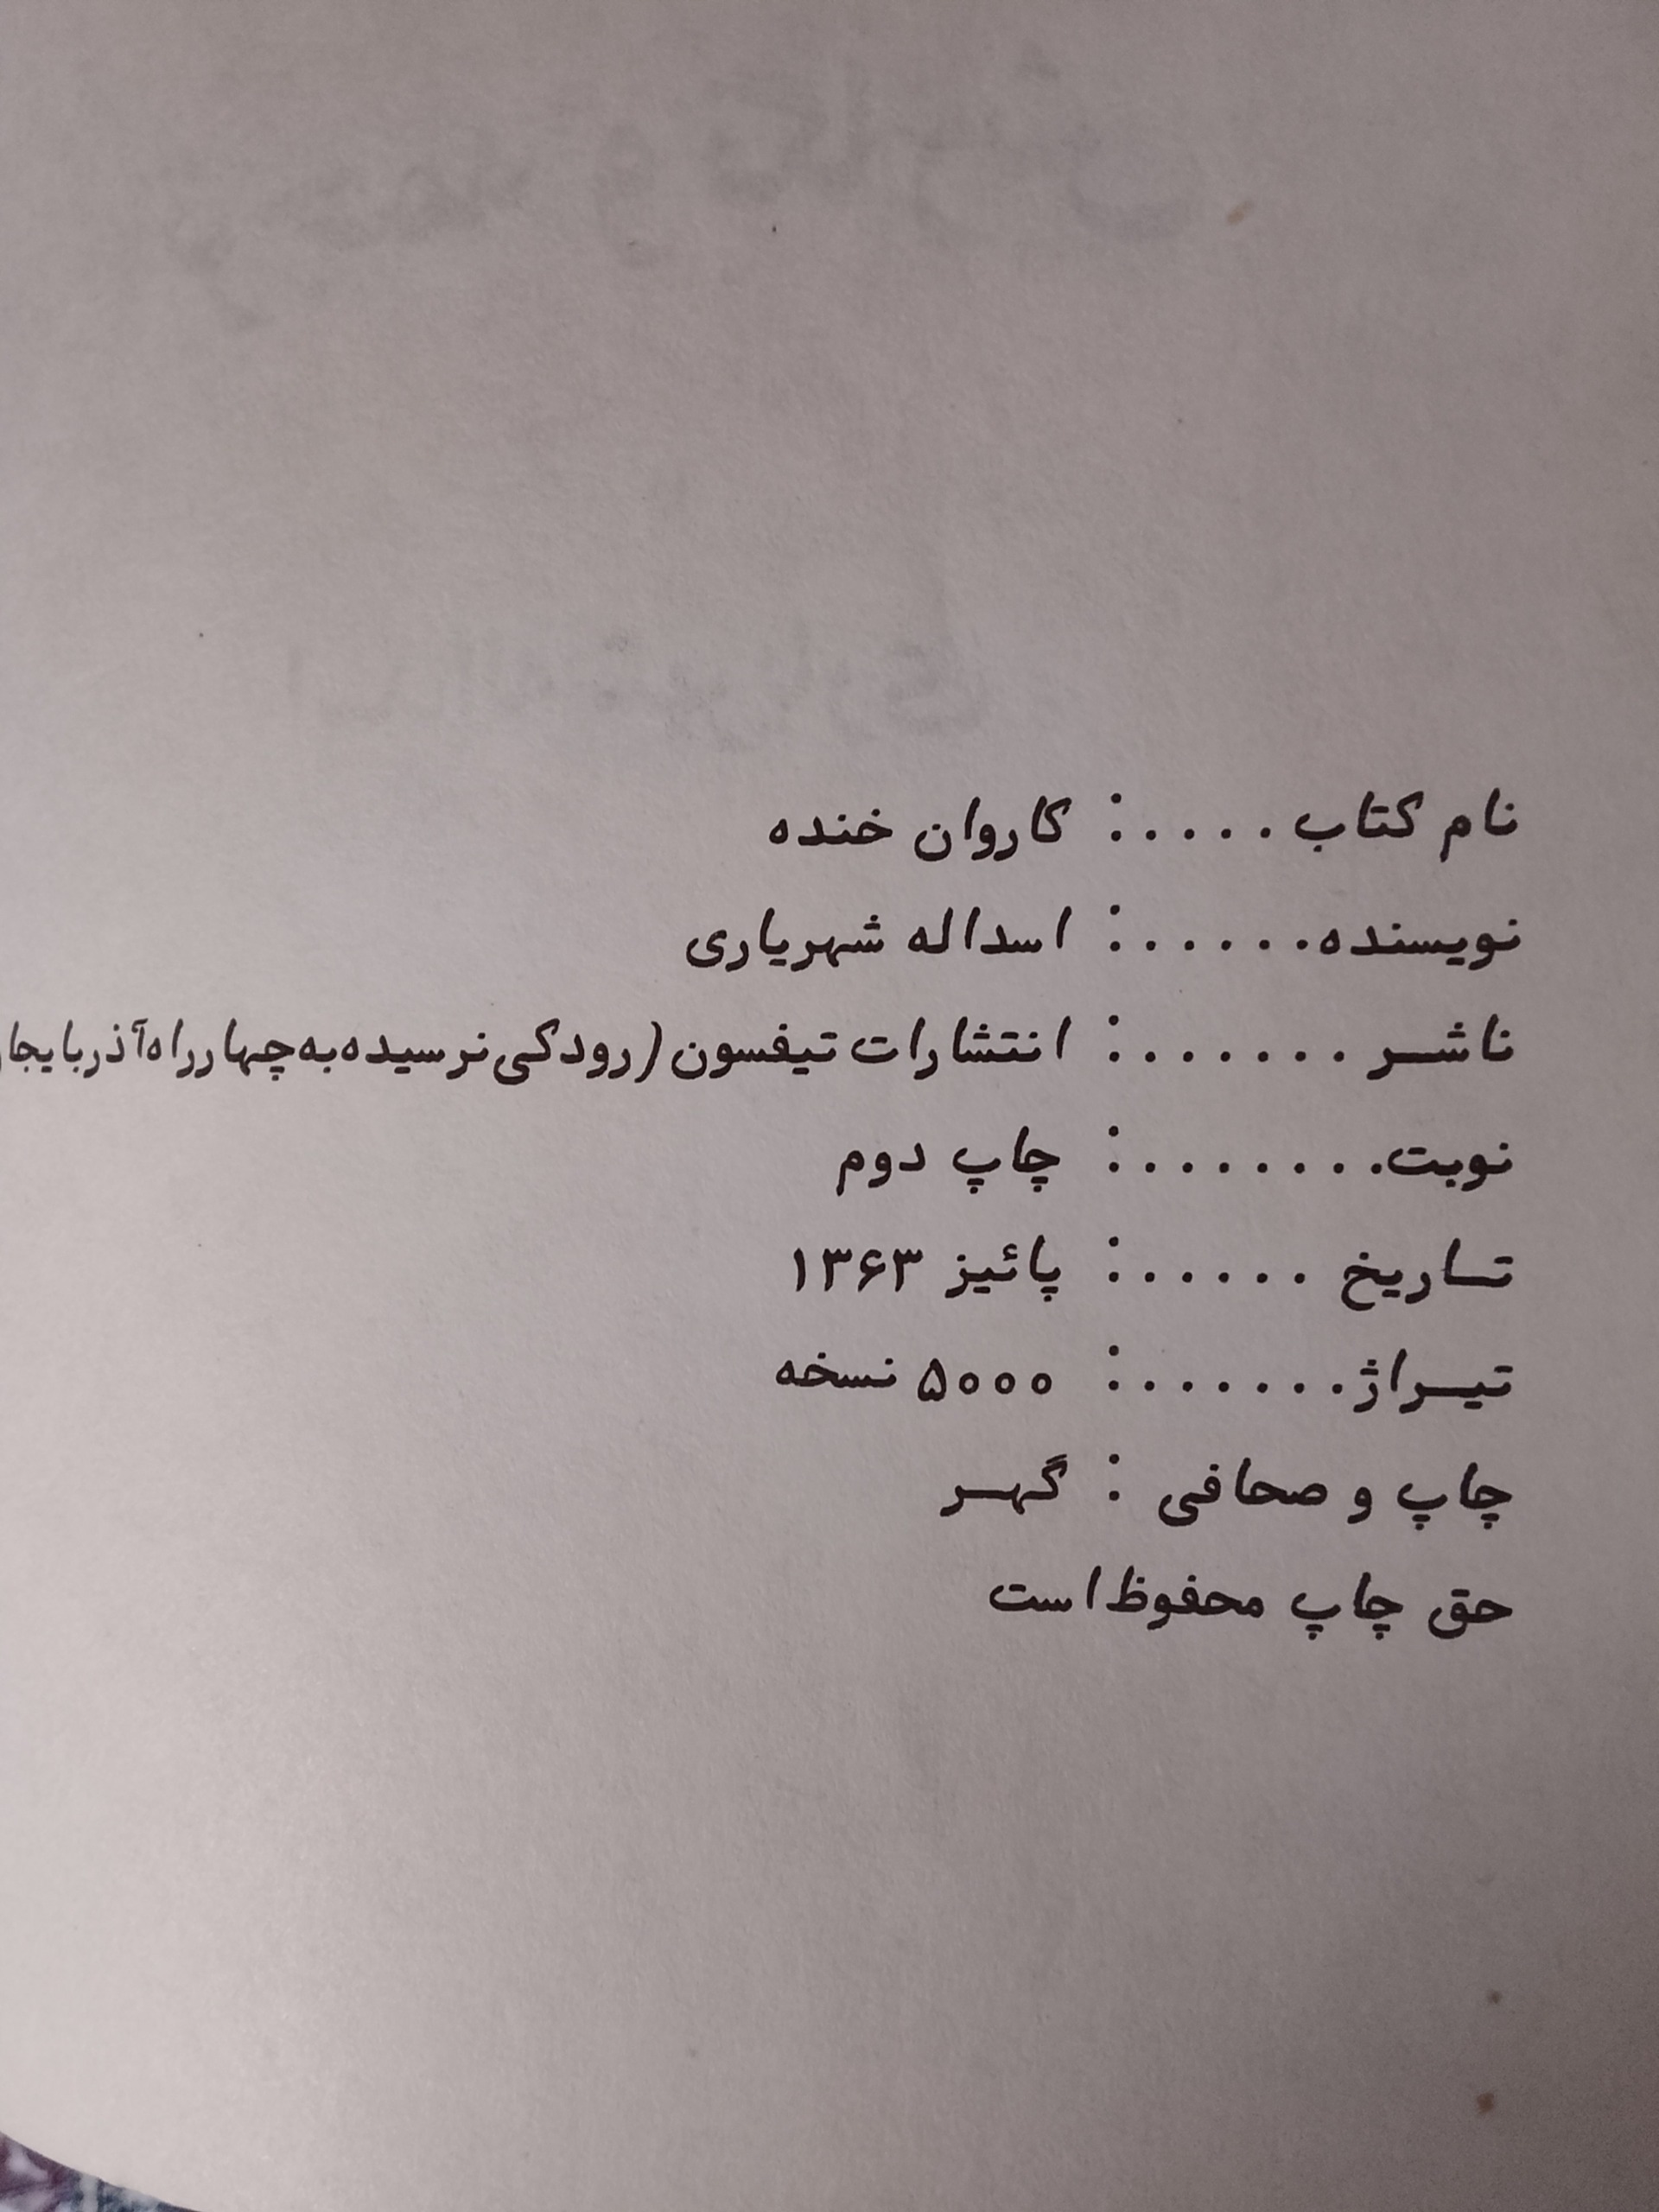 نام کتاب . . . . . : کاروان خنده
نویسنده . . . . . . : اسداله شهریاری
ناشر . . . . . . . : انتشارات تیفسون (رودکی نرسیده به چهارراه آذربایجا
نوبت . . . . . . . . : چاپ دوم
تاریخ . . . . . . : پائیز ۱۳۶۳
تیراژ . . . . . . . : ۵۰۰۰ نسخه
چاپ و صحافی : گهر
حق چاپ محفوظ است